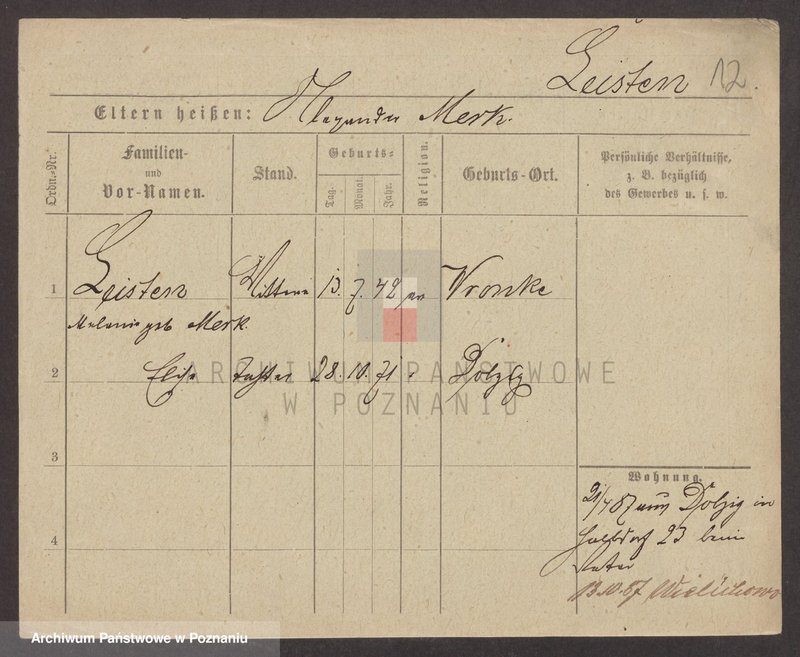 Leisten 12.
Eltern heißen: Alexander Merk.
Ordn.-Nr.
Familien-
und
Vor-Namen.
Stand.
Geburts-
Tag.
Monat.
Jahr.
Religion.
Geburts-Ort.
Persönliche Verhältnisse,
z. B. bezüglich
des Gewerbes u. s. w.
1 Leisten Wittwe 13. 7. 42 ev Wronke
Melanie geb Merk.
2 Elise Tochter 28. 10. 71 " Dolzig
ARCHIWUM PAŃSTWOWE
W POZNANIU
3
4
Wohnung.
21/4 87 aus Dolzig in
23 beim
Vater
13.10.87 Wielichowo
Archiwum Państwowe w Poznaniu